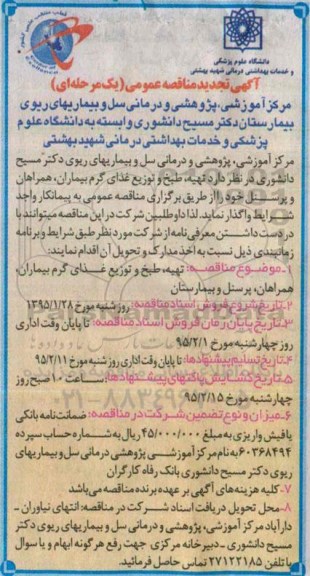 دانشگاه علوم پزشکی
و خدمات بهداشتی درمانی شهید بهشتی
آگهی تجدید مناقصه عمومی (یک مرحله‌ای)
مرکز آموزشی، پژوهشی و درمانی سل و بیماریهای ریوی
بیمارستان دکتر مسیح دانشوری وابسته به دانشگاه علوم
پزشکی و خدمات بهداشتی درمانی شهید بهشتی
مرکز آموزشی، پژوهشی و درمانی سل و بیماریهای ریوی دکتر مسیح
دانشوری در نظر دارد تهیه، طبخ و توزیع غذای گرم بیماران، همراهان
و پرسنل خود را از طریق برگزاری مناقصه عمومی به پیمانکار واجد
شرایط واگذار نماید. لذا داوطلبین شرکت در این مناقصه میتوانند با
در دست داشتن معرفی نامه از شرکت مورد نظر طبق شرایط و برنامه
زمانبندی ذیل نسبت به اخذ مدارک و تحویل آن اقدام نمایند:
۱-موضوع مناقصه: تهیه، طبخ و توزیع غذای گرم بیماران،
همراهان، پرسنل و بیمارستان
۲-تاریخ شروع فروش اسناد مناقصه: روز شنبه مورخ ۱۳۹۵/۱/۲۸
۳-تاریخ پایان زمان فروش اسناد مناقصه: تا پایان وقت اداری
روز چهارشنبه مورخ ۹۵/۲/۱
۴-تاریخ تسلیم پیشنهادها: تا پایان وقت اداری روز شنبه مورخ ۹۵/۲/۱۱
۵-تاریخ گشایش پاکتهای پیشنهادها: ساعت ۱۰ صبح روز
چهارشنبه مورخ ۹۵/۲/۱۵
۶-میزان و نوع تضمین شرکت در مناقصه: ضمانت‌نامه بانکی
یا فیش واریزی به مبلغ ۴۵/۰۰۰/۰۰۰ ریال به شماره حساب سپرده
۶۰۳۶۸۴۹۴ به نام مرکز آموزشی پژوهشی درمانی سل و بیماریهای
ریوی دکتر مسیح دانشوری بانک رفاه کارگران
۷- کلیه هزینه‌های آگهی بر عهده برنده مناقصه می‌باشد
۸- محل تحویل دریافت اسناد شرکت در مناقصه: انتهای نیاوران -
دارآباد مرکز آموزشی، پژوهشی و درمانی سل و بیماریهای ریوی دکتر
مسیح دانشوری - دبیرخانه مرکزی جهت رفع هرگونه ابهام و یا سوال
با تلفن ۲۷۱۲۲۱۸۵ تماس حاصل فرمائید.